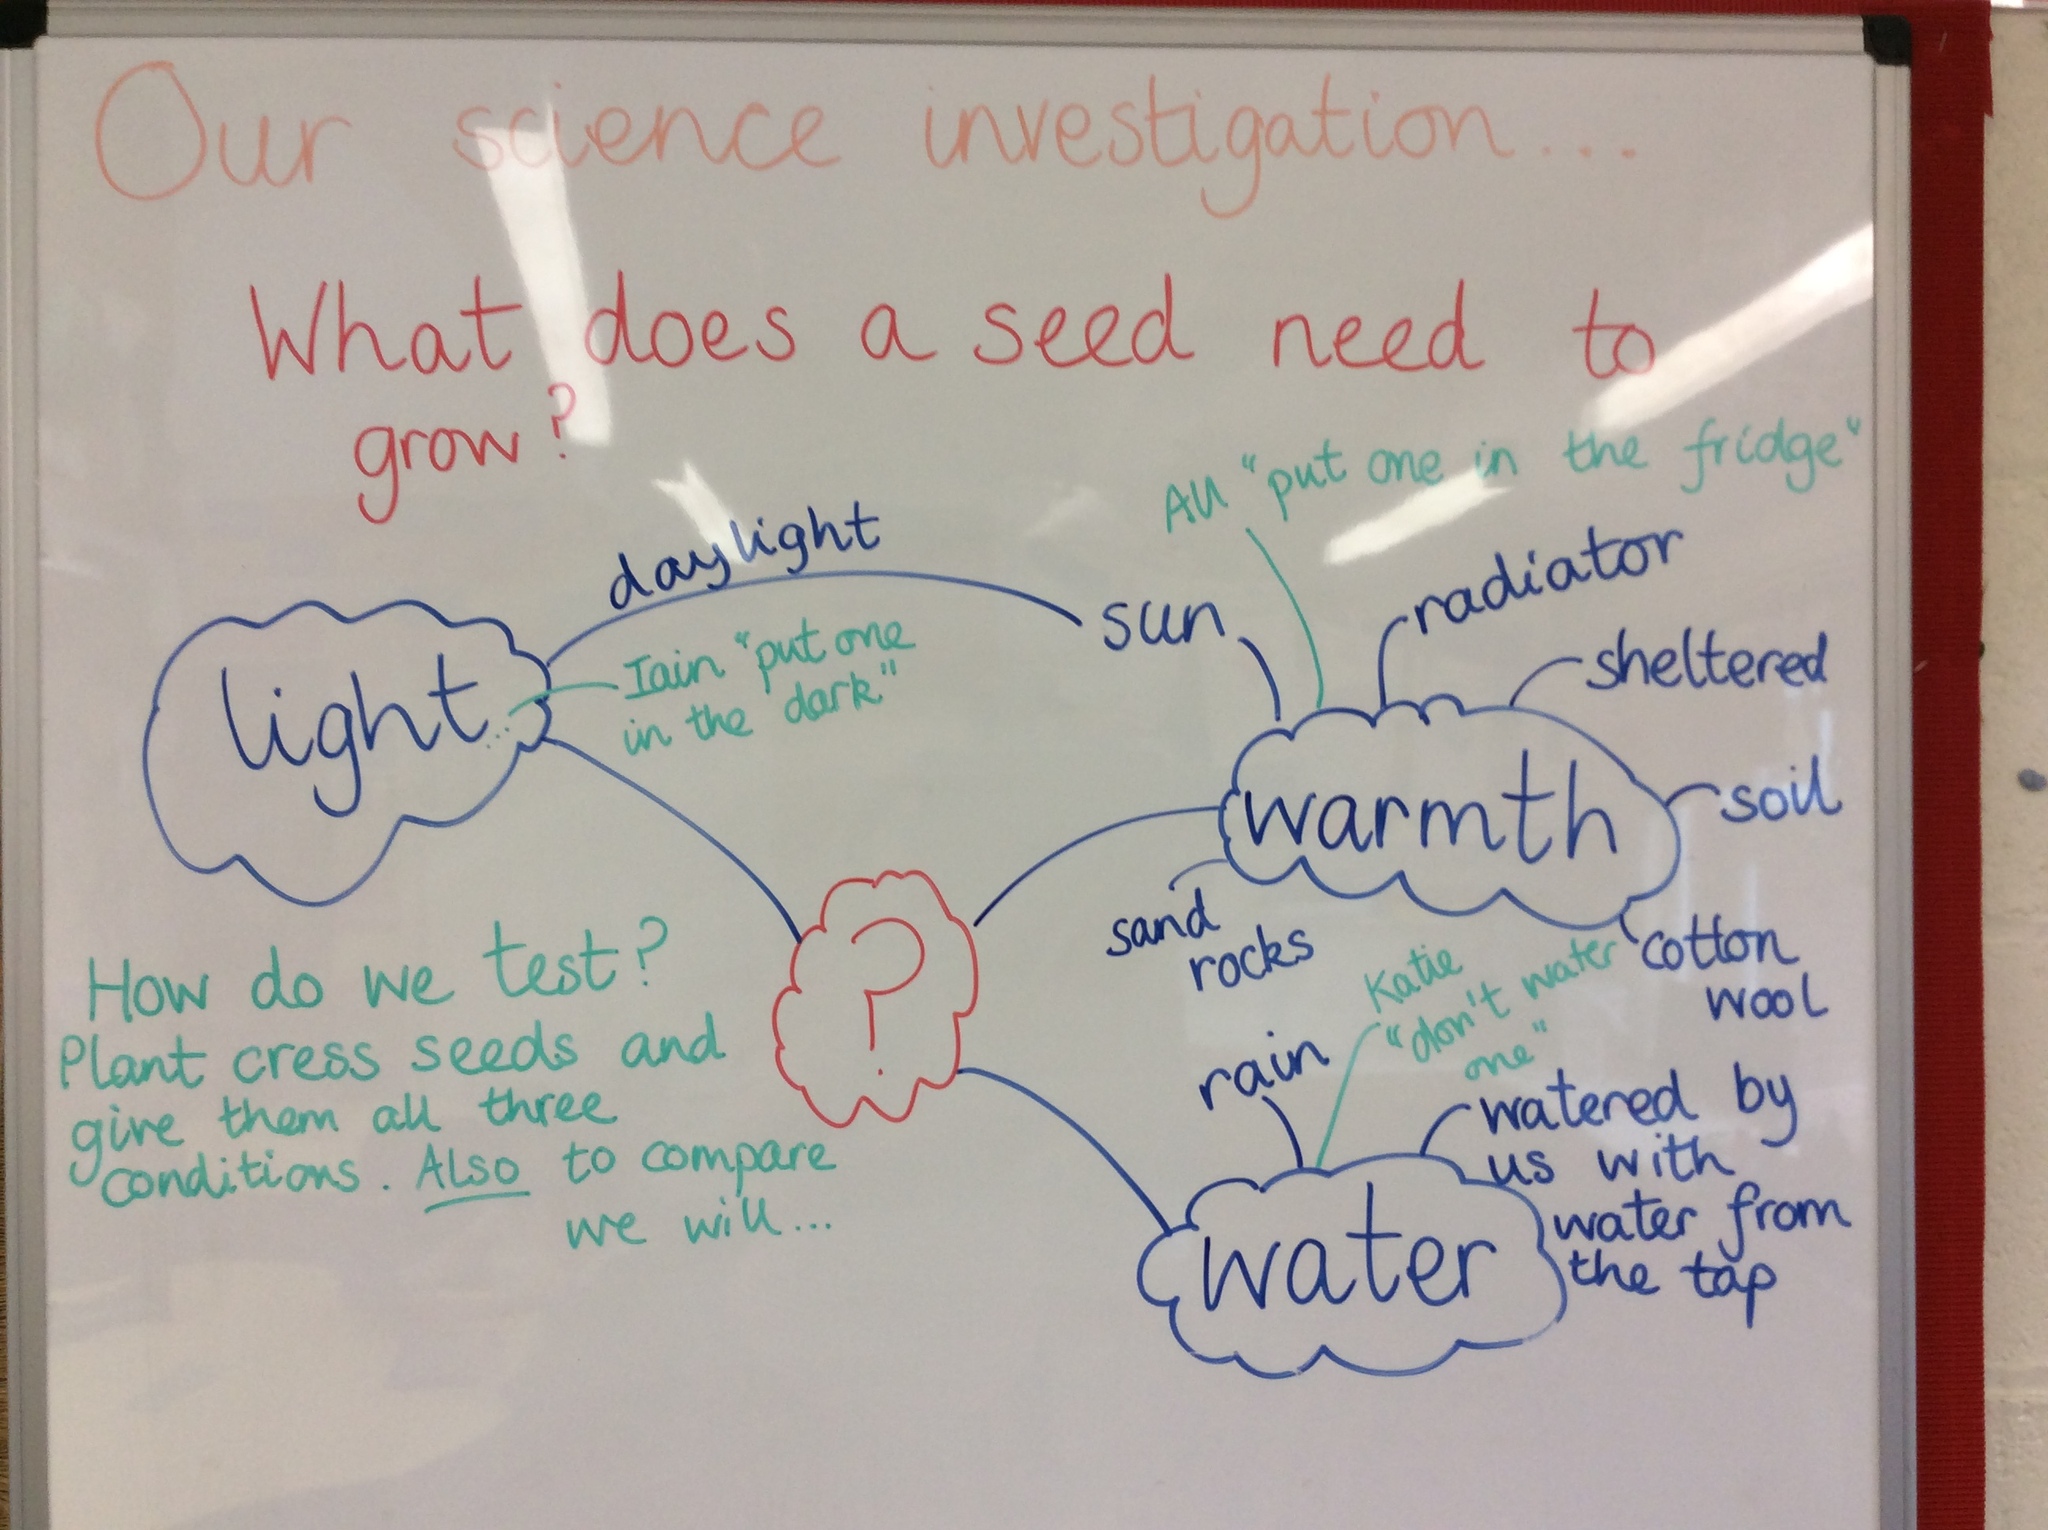 Our science investigation...
What does a seed need to
grow?
All "put one in the fridge"
daylight
sun
radiator
sheltered
light...
Iain "put one
in the dark"
warmth
soil
sand
rocks
cotton
wool
?
How do we test?
Plant cress seeds and
give them all three
conditions. Also to compare
we will...
Katie
"don't water
one"
rain
watered by
us with
water from
the tap
water